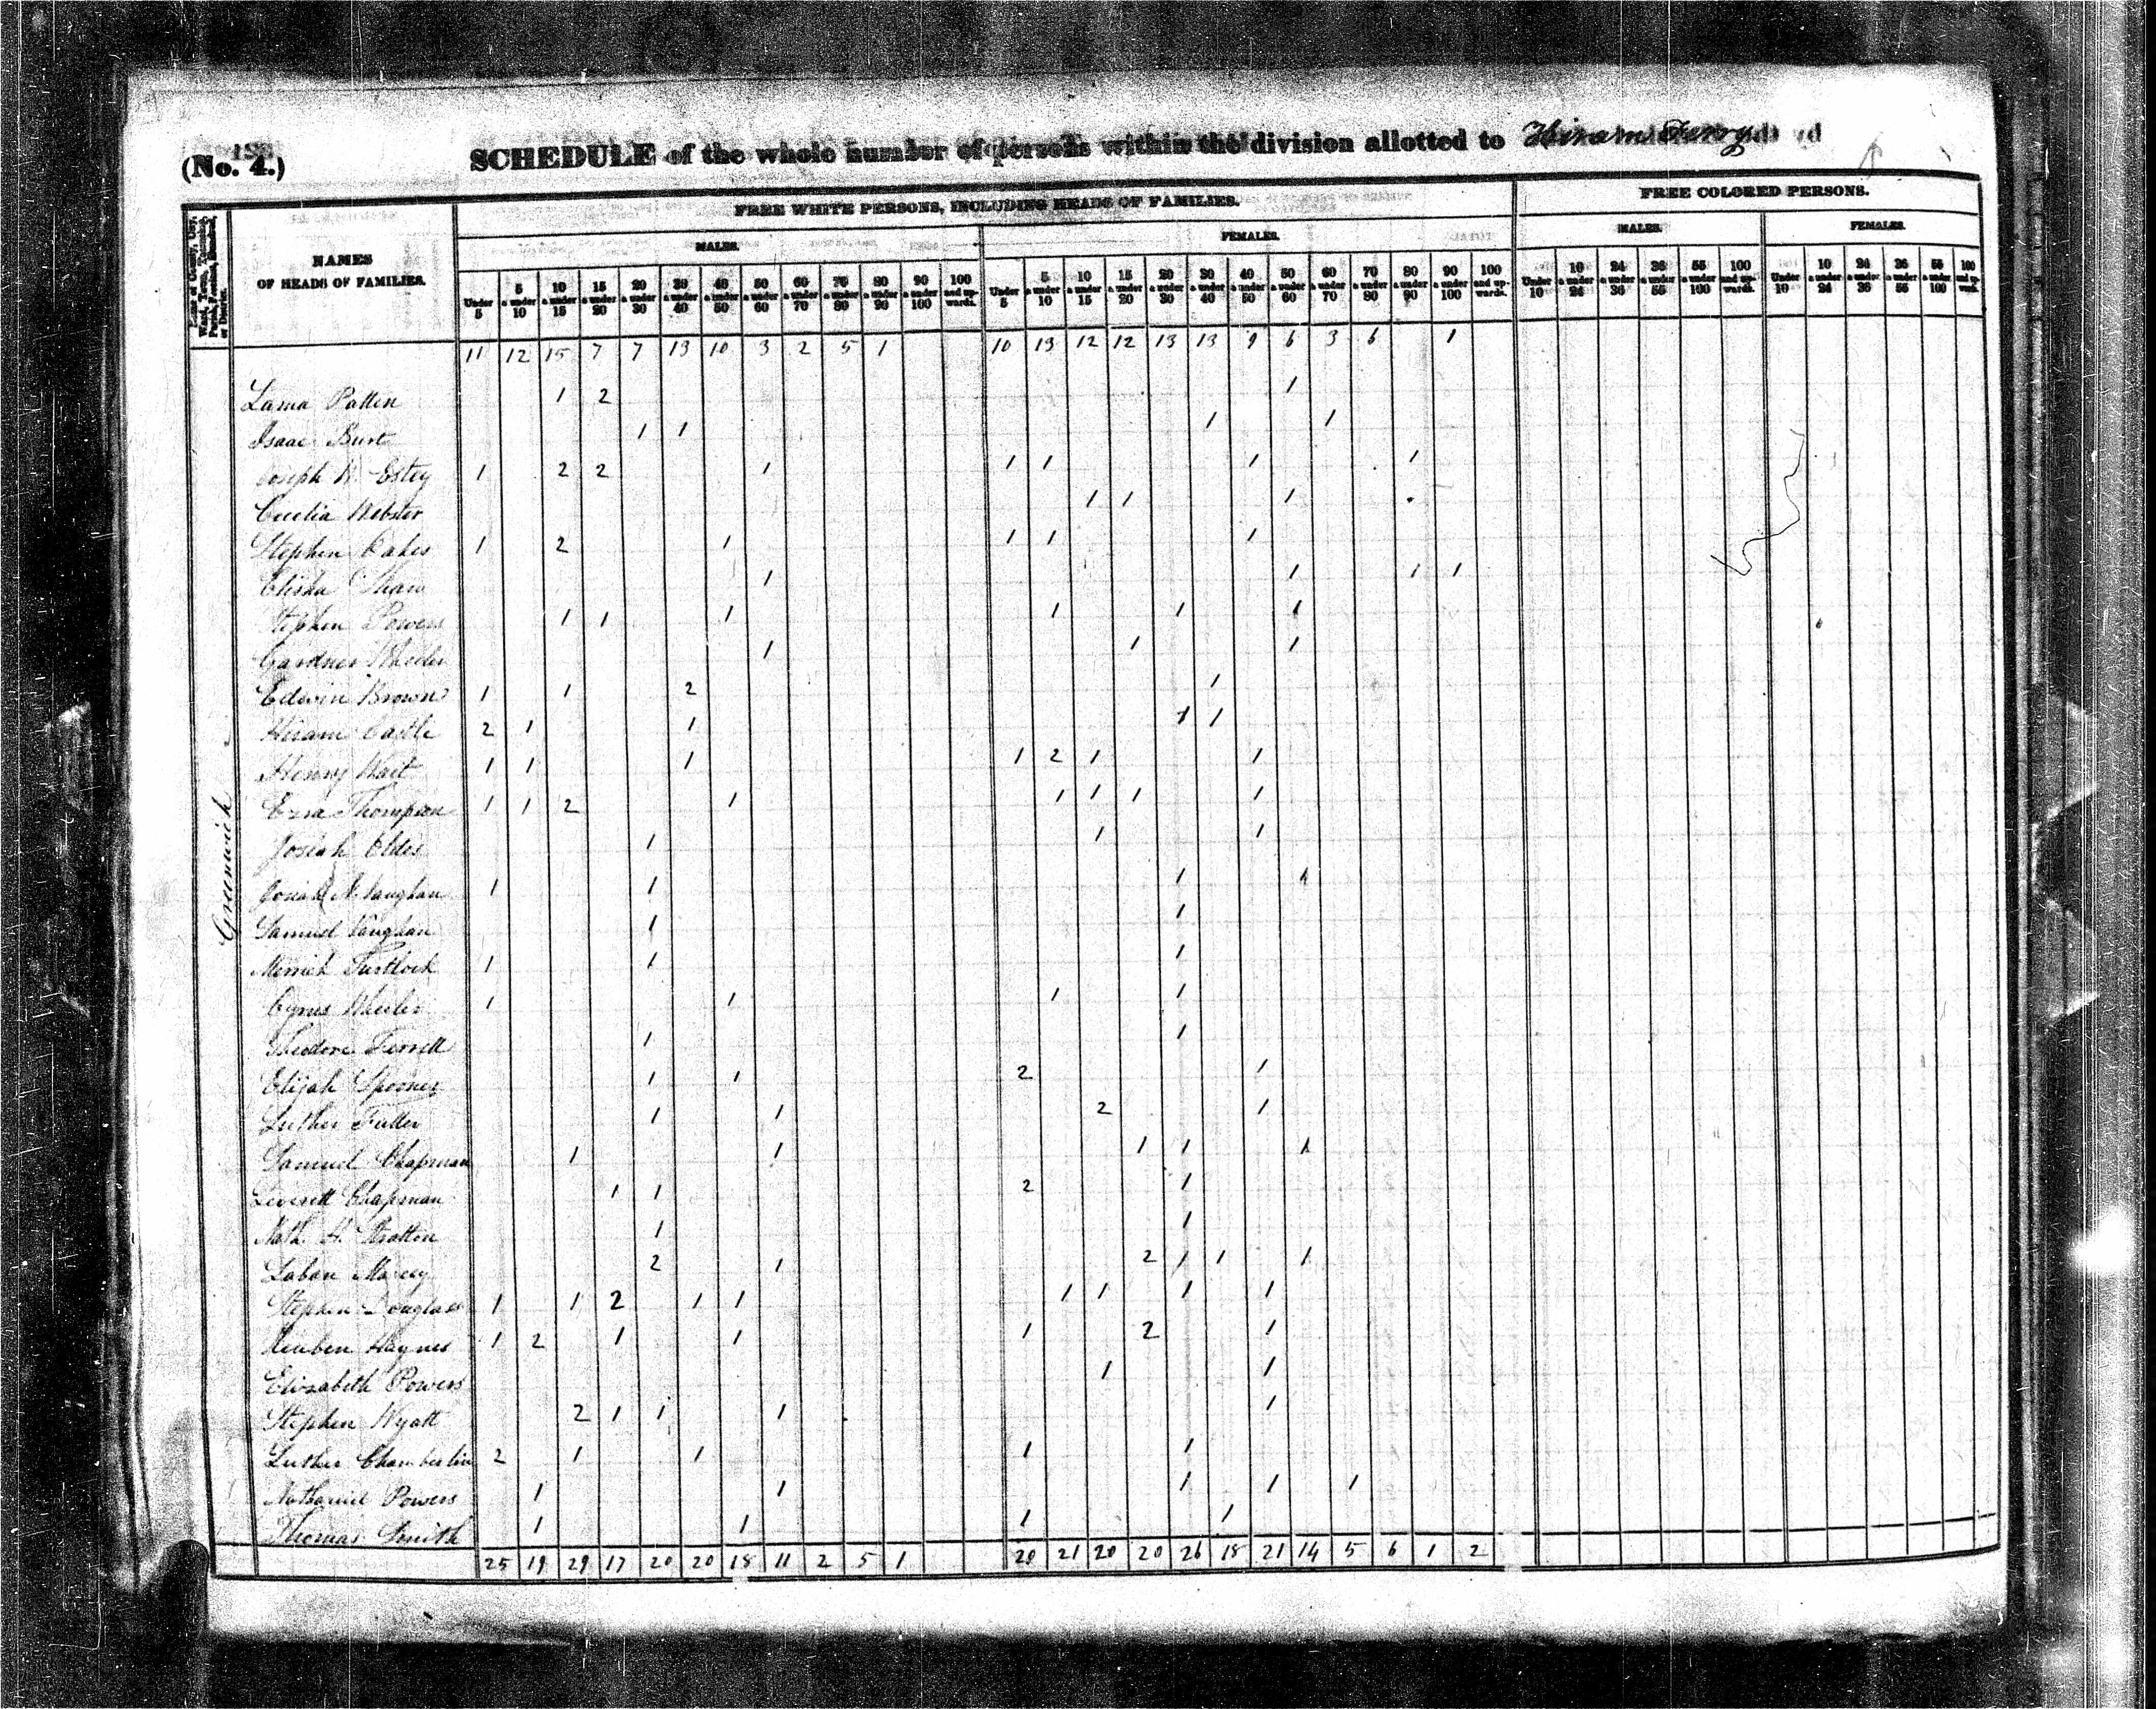 (No. 4.)
SCHEDULE of the whole number of persons within the division allotted to Hiram Ferry
FREE WHITE PERSONS, INCLUDING HEADS OF FAMILIES.
FREE COLORED PERSONS.
NAMES
OF HEADS OF FAMILIES.
MALES.
FEMALES.
MALES.
FEMALES.
Under 5
5 & under 10
10 & under 15
15 & under 20
20 & under 30
30 & under 40
40 & under 50
50 & under 60
60 & under 70
70 & under 80
80 & under 90
90 & under 100
100 and upwards.
Under 5
5 & under 10
10 & under 15
15 & under 20
20 & under 30
30 & under 40
40 & under 50
50 & under 60
60 & under 70
70 & under 80
80 & under 90
90 & under 100
100 and upwards.
Under 10
10 & under 24
24 & under 36
36 & under 55
55 & under 100
100 and upwards.
Under 10
10 & under 24
24 & under 36
36 & under 55
55 & under 100
100 and upwards.
11 12 15 7 7 13 10 3 2 5 1 10 13 12 12 13 13 9 6 3 6 1
Greenwich
Patten 1 2 1
Isaac Burt 1 1 1 1
Joseph W. Estey 1 2 2 1 1 1 1 1
Cecelia Webster 1 1 1
Stephen Oakes 1 2 1 1 1 1
Elisha Shaw 1 1 1 1
Stephen Powers 1 1 1 1 1 1
Gardner Wheeler 1 1 1
Edwin Brown 1 1 2 1
Hiram Castle 2 1 1 1 1
Henry Wait 1 1 1 1 2 1 1
Ezra Thompson 1 1 2 1 1 1 1 1
Josiah 1 1 1
Josiah N. Vaughan 1 1 1 1
Samuel Vaughan 1 1
Merrick 1 1 1
Cyrus Wheeler 1 1 1 1
Theodore Ferrell 1 1
Elijah Spooner 1 1 2 1
Luther Fuller 1 1 2 1
Samuel Chapman 1 1 1 1 1
Leverett Chapman 1 1 2 1
Nath. H. Stratton 1 1
Laban Marcy 2 1 2 1 1 1
Stephen Douglass 1 1 2 1 1 1 1 1 1
Reuben Haynes 1 2 1 1 1 2 1
Elizabeth Powers 1 1
Stephen Wyatt 2 1 1 1 1
Luther Chamberlin 2 1 1 1 1
Nathaniel Powers 1 1 1 1 1
Thomas Smith 1 1 1 1
25 19 29 17 20 20 18 11 2 5 1 20 21 20 20 26 18 21 14 5 6 1 2